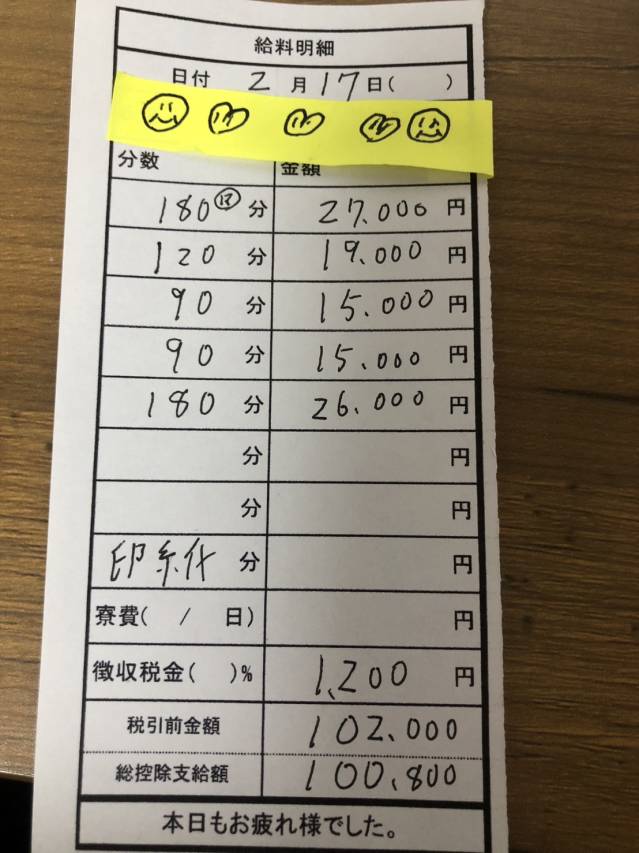 給料明細
日付 2月17日( )
分数 金額
180 分 27.000 円
120 分 19.000 円
90 分 15.000 円
90 分 15.000 円
180 分 26.000 円
分 円
分 円
分 円
寮費( / 日) 円
徴収税金( )% 1,200 円
税引前金額 102.000
総控除支給額 100.800
本日もお疲れ様でした。